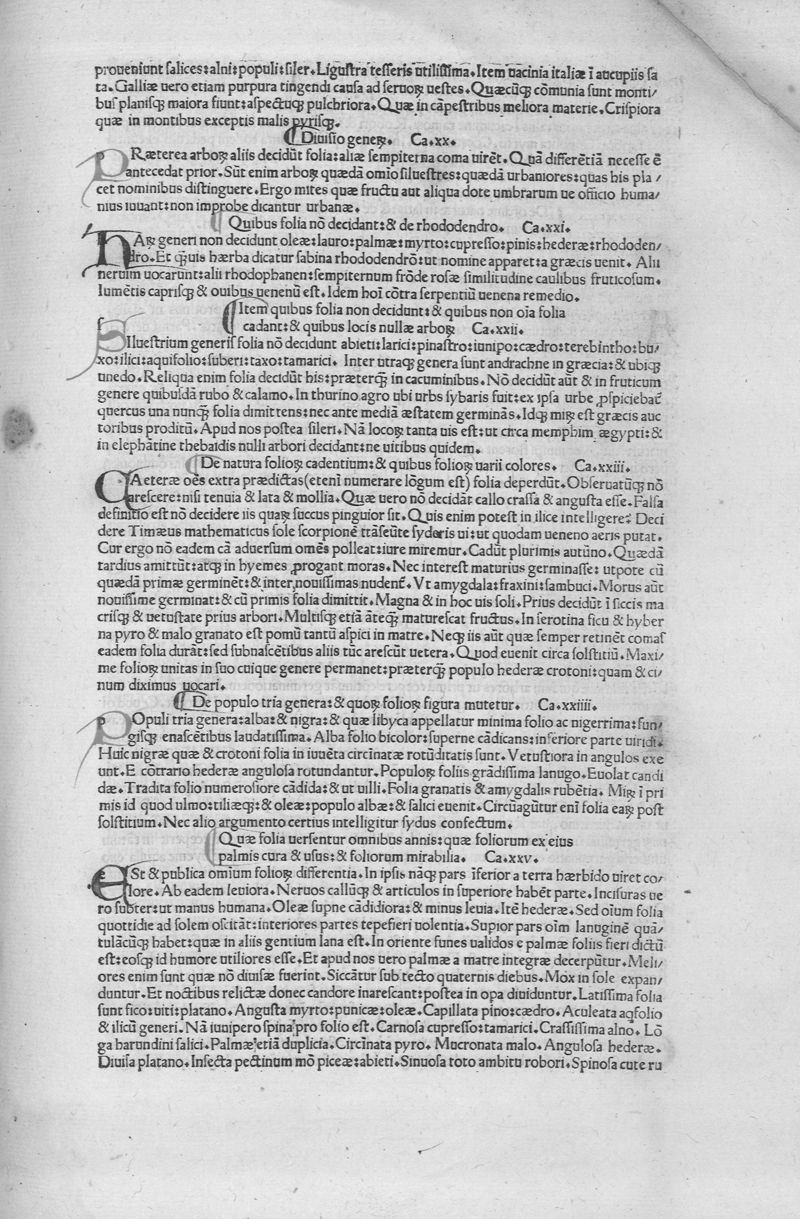 proueniunt ſalices:alni:populi:ſiler.Liguſtra teſſeris utiliſſima.Item uacinia italiæ ī aucupiis ſa
ta.Galliæ uero etiam purpura tingendi cauſa ad ſeruoꝝ ueſtes.Quæcūꝗ cōmunia ſunt monti/
buſ planiſꝗ maiora fiunt:aſpectuꝗ pulchriora.Quæ in cāpeſtribus meliora materie.Criſpiora
quæ in montibus exceptis malis pyriſꝗ.
¶ Diuiſio geneꝝ. Ca.xx.
PRæterea arboꝝ aliis decidūt folia:aliæ ſempiterna coma uirēt.Quā differētiā neceſſe ē
antecedat prior.Sūt enim arboꝝ quædā omīo ſilueſtres:quædā urbaniores:quas his pla/
cet nominibus diſtinguere.Ergo mites quæ fructu aut aliqua dote umbrarum ue officio huma/
nius iuuant:non improbe dicantur urbanæ.
¶ Quibus folia nō decidant:& de rhododendro. Ca.xxi.
HAꝝ generi non decidunt oleæ:lauro:palmæ:myrto:cupreſſo:pinis:hederæ:rhododen/
dro.Et ꝗuis hærba dicatur ſabina rhododendrō:ut nomine apparet:a græcis uenit.Alii
neruim uocarunt:alii rhodophanen:ſempiternum frōde roſæ ſimilitudine caulibus fruticoſum.
Iumētis capriſꝗ & ouibus uenenū eſt.Idem hoī cōtra ſerpentiū uenena remedio.
¶ Item quibus folia non decidunt:& quibus non oīa folia
cadant:& quibus locis nullæ arboꝝ Ca.xxii.
SIlueſtrium generiſ folia nō decidunt abieti:larici:pinaſtro:iunipo:cædro:terebintho:bu/
xo:ilici:aquifolio:ſuberi:taxo:tamarici. Inter utraꝗ genera ſunt andrachne in græcia:& ubiꝗ
unedo.Reliqua enim folia decidūt his:præterꝗ in cacuminibus.Nō decidūt aūt & in fruticum
genere quibuſdā rubo & calamo.In thurino agro ubi urbs ſybaris fuit:ex ipſa urbe ꝓſpiciebat̄
quercus una nunꝗ folia dimittens:nec ante mediā æſtatem germinās.Idꝗ miꝝ eſt græcis auc
toribus proditū.Apud nos poſtea ſileri.Nā locoꝝ tanta uis eſt:ut circa memphim ægypti:&
in elephātine thebaidis nulli arbori decidant:ne uitibus quidem.
¶ De natura folioꝝ cadentium:& quibus folioꝝ uarii colores. Ca.xxiii.
CAeteræ oēs extra prædictas(etenī numerare lōgum eſt) folia deperdūt.Obſeruatūꝗ nō
areſcere:niſi tenuia & lata & mollia.Quæ uero nō decidāt callo craſſa & anguſta eſſe.Falſa
definitio eſt nō decidere iis quaꝝ ſuccus pinguior ſit.Quis enim poteſt in ilice intelligere? Deci
dere Timæus mathematicus ſole ſcorpionē trāſeūte ſyderis ui:ut quodam ueneno aeris putat.
Cur ergo nō eadem cā aduerſum omēs polleat:iure miremur.Cadūt plurimis autūno.Quædā
tardius amittūt:atꝗ in hyemes ꝓrogant moras.Nec intereſt maturius germinaſſe: utpote cū
quædā primæ germinēt:& inter nouiſſimas nudent̄.Vt amygdala:fraxini:ſambuci.Morus aūt
nouiſſime germinat:& cū primis folia dimittit.Magna & in hoc uis ſoli.Prius decidūt ī ſiccis ma
criſꝗ & uetuſtate prius arbori.Multiſꝗ etiā āteꝗ matureſcat fructus.In ſerotina ficu & hyber
na pyro & malo granato eſt pomū tantū aſpici in matre.Neꝗ iis aūt quæ ſemper retinēt comaſ
eadem folia durāt:ſed ſubnaſcētibus aliis tūc areſcūt uetera.Quod euenit circa ſolſtitiū.Maxi/
me folioꝝ unitas in ſuo cuique genere permanet:præterꝗ populo hederæ crotoni:quam & ci/
num diximus uocari.
¶ De populo tria genera:& quoꝝ folioꝝ figura mutetur. Ca.xxiiii.
POpuli tria genera:alba:& nigra:& quæ libyca appellatur minima folio ac nigerrima:fun/
giſꝗ enaſcētibus laudatiſſima.Alba folio bicolor:ſuperne cādicans:inferiore parte uiridi.
Huic nigræ quæ & crotoni folia in iuuēta circīnatæ rotūditatis ſunt.Vetuſtiora in angulos exe
unt.E cōtrario hederæ anguloſa rotundantur.Populoꝝ foliis grādiſſima lanugo.Euolat candi
dæ.Tradita folio numeroſiore cādida:& ut uilli.Folia granatis & amygdalis rubētia. Miꝝ ī pri
mis id quod ulmo:tiliæꝗ:& oleæ:populo albæ:& ſalici euenit.Circūagūtur enī folia eaꝝ poſt
ſolſtitium.Nec alio argumento certius intelligitur ſydus confectum.
¶ Quæ folia uerſentur omnibus annis:quæ foliorum ex eius
palmis cura & uſus:& foliorum mirabilia. Ca.xxv.
ESt & publica omīum folioꝝ differentia.In ipſis nāꝗ pars īferior a terra hærbido uiret co/
lore.Ab eadem leuiora.Neruos callūꝗ & articulos in ſuperiore habēt parte.Inciſuras ue
ro ſubter:ut manus humana.Oleæ ſupne cādidiora:& minus leuia.Itē hederæ.Sed oīum folia
quottidie ad ſolem oſcitāt:interiores partes tepefieri uolentia.Supior pars oīm lanuginē quā/
tulācūꝗ habet:quæ in aliis gentium lana eſt.In oriente funes ualidos e palmæ foliis fieri dictū
eſt:eoſꝗ id humore utiliores eſſe.Et apud nos uero palmæ a matre integræ decerpūtur.Meli/
ores enim ſunt quæ nō diuiſæ fuerint.Siccātur ſub tecto quaternis diebus.Mox in ſole expan/
duntur.Et noctibus relictæ donec candore inareſcant:poſtea in opa diuiduntur.Latiſſima folia
ſunt fico:uiti:platano.Anguſta myrto:punicæ:oleæ.Capillata pino:cædro.Aculeata aqfolio
& ilicū generi.Nā iunipero ſpina pro folio eſt.Carnoſa cupreſſo:tamarici.Craſſiſſima alno.Lō
ga harundini ſalici.Palmæ etiā duplicia.Circīnata pyro.Mucronata malo.Anguloſa hederæ.
Diuiſa platano.Inſecta pectinum mō piceæ:abieti.Sinuoſa toto ambitu robori.Spinoſa cute ru